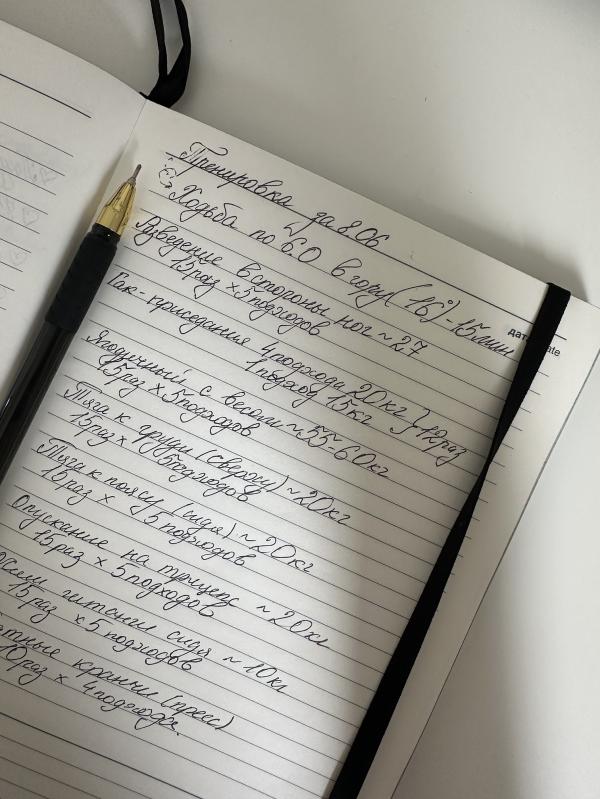 Тренировка за 8.06
Ходьба по 6.0 в гору (16°) - 15 мин
дат
ate
Разведение в стороны ног ~ 27
15 раз х 5 подходов
Гак-приседания 4 подхода 20кг } 12 раз
1 подход 15кг
Ягодичный с весом ~ 55-60кг
15 раз х 5 подходов
Тяга к груди (сверху) ~ 20кг
15 раз х 5 подходов
Тяга к поясу (сидя) ~ 20кг
15 раз х 5 подходов
Опускание на трицепс ~ 20кг
15 раз х 5 подходов
гантели сидя ~ 10кг
15 раз х 5 подходов
кранчи (пресс)
10 раз х 4 подхода.